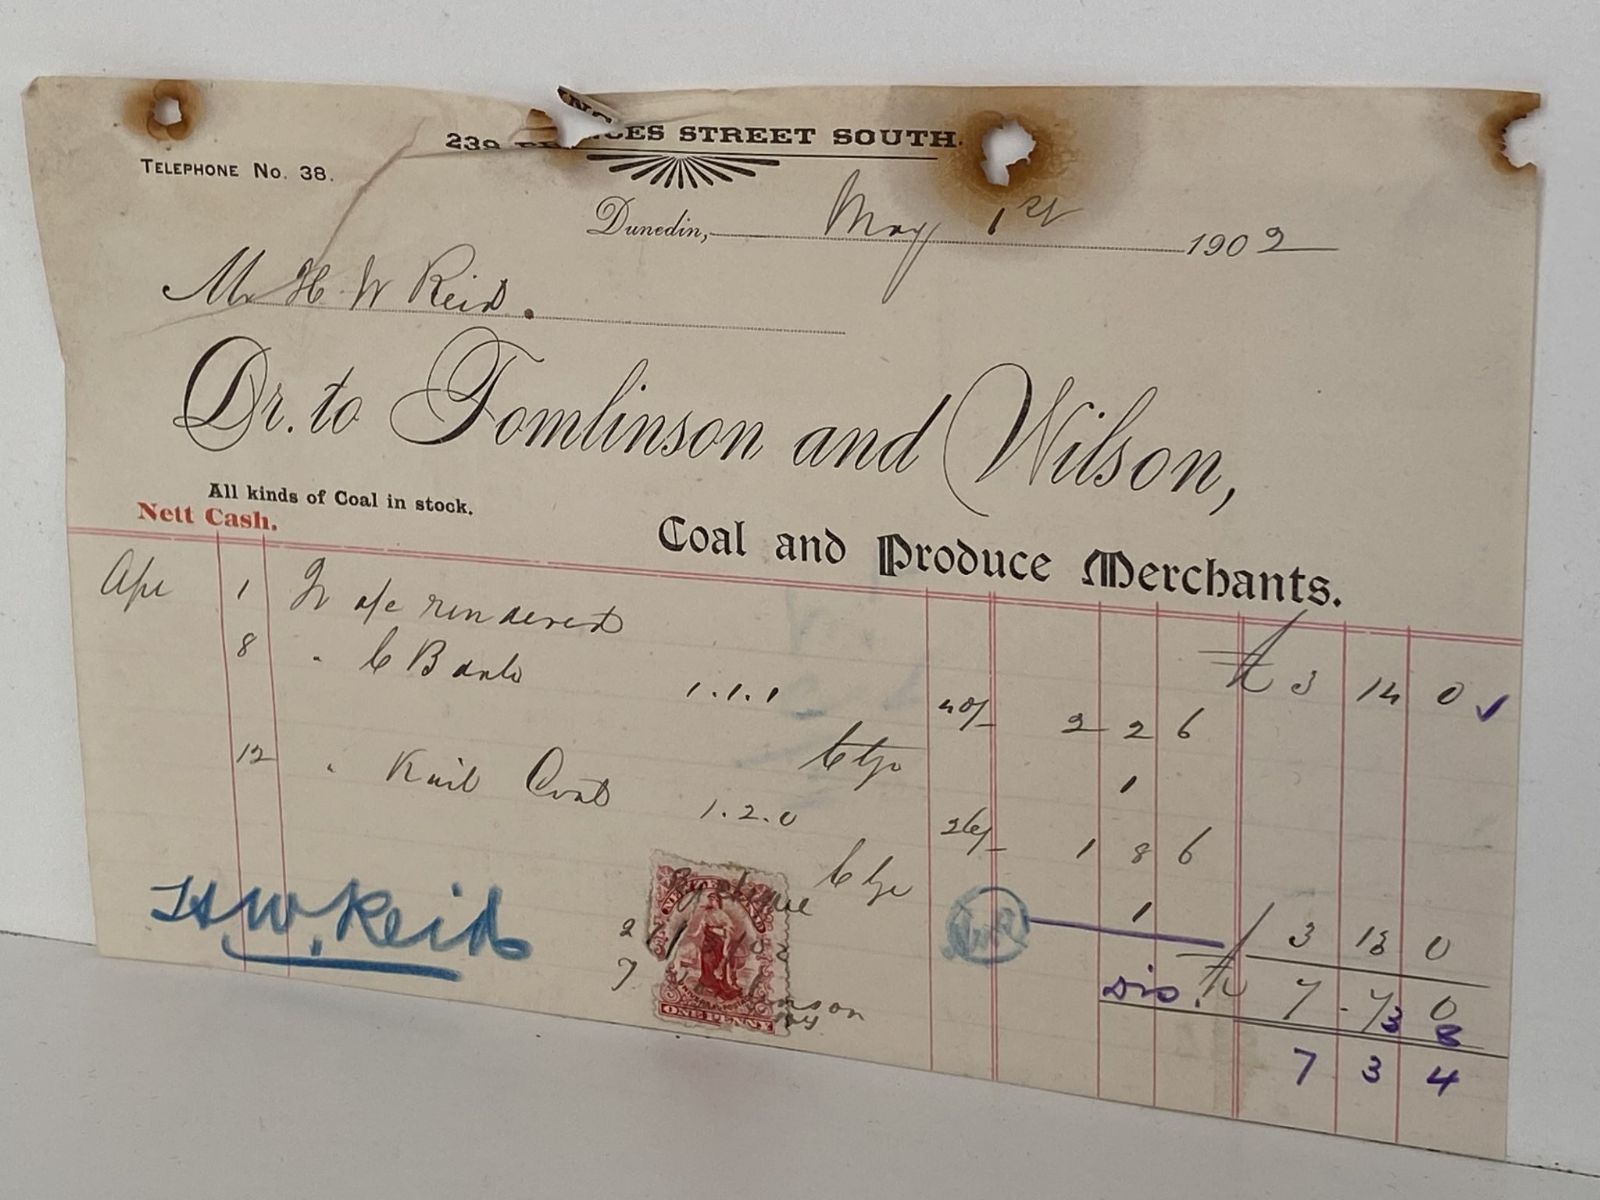 239 PRINCES STREET SOUTH.
TELEPHONE No. 38.
Dunedin, May 1st 1902
Mr H W Reid.
Dr. to Tomlinson and Wilson,
All kinds of Coal in stock.
Nett Cash.
Coal and Produce Merchants.
Apr 1 To a/c rendered £ 3 14 0 ✓
8 " 1.1.1 40/- 2 2 6
Ctge 1
12 " Kait Coal 1.2.0 26/- 1 8 6
Ctge 1 3 13 0
H.W. Reid
Dis. £ 7 - 7 0
3 8
7 3 4
ONE PENNY